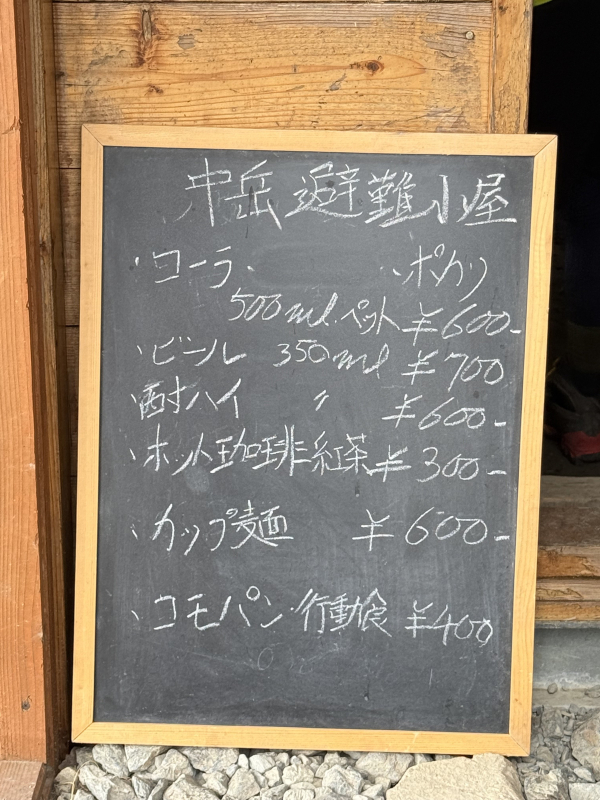 中岳避難小屋
・コーラ、 ・ポカリ
500ml.ペット ¥600-
・ビール 350ml ¥700
酎ハイ 〃 ¥600-
・ホット珈琲 紅茶 ¥300-
・カップ麺 ¥600-
・コモパン・行動食 ¥400